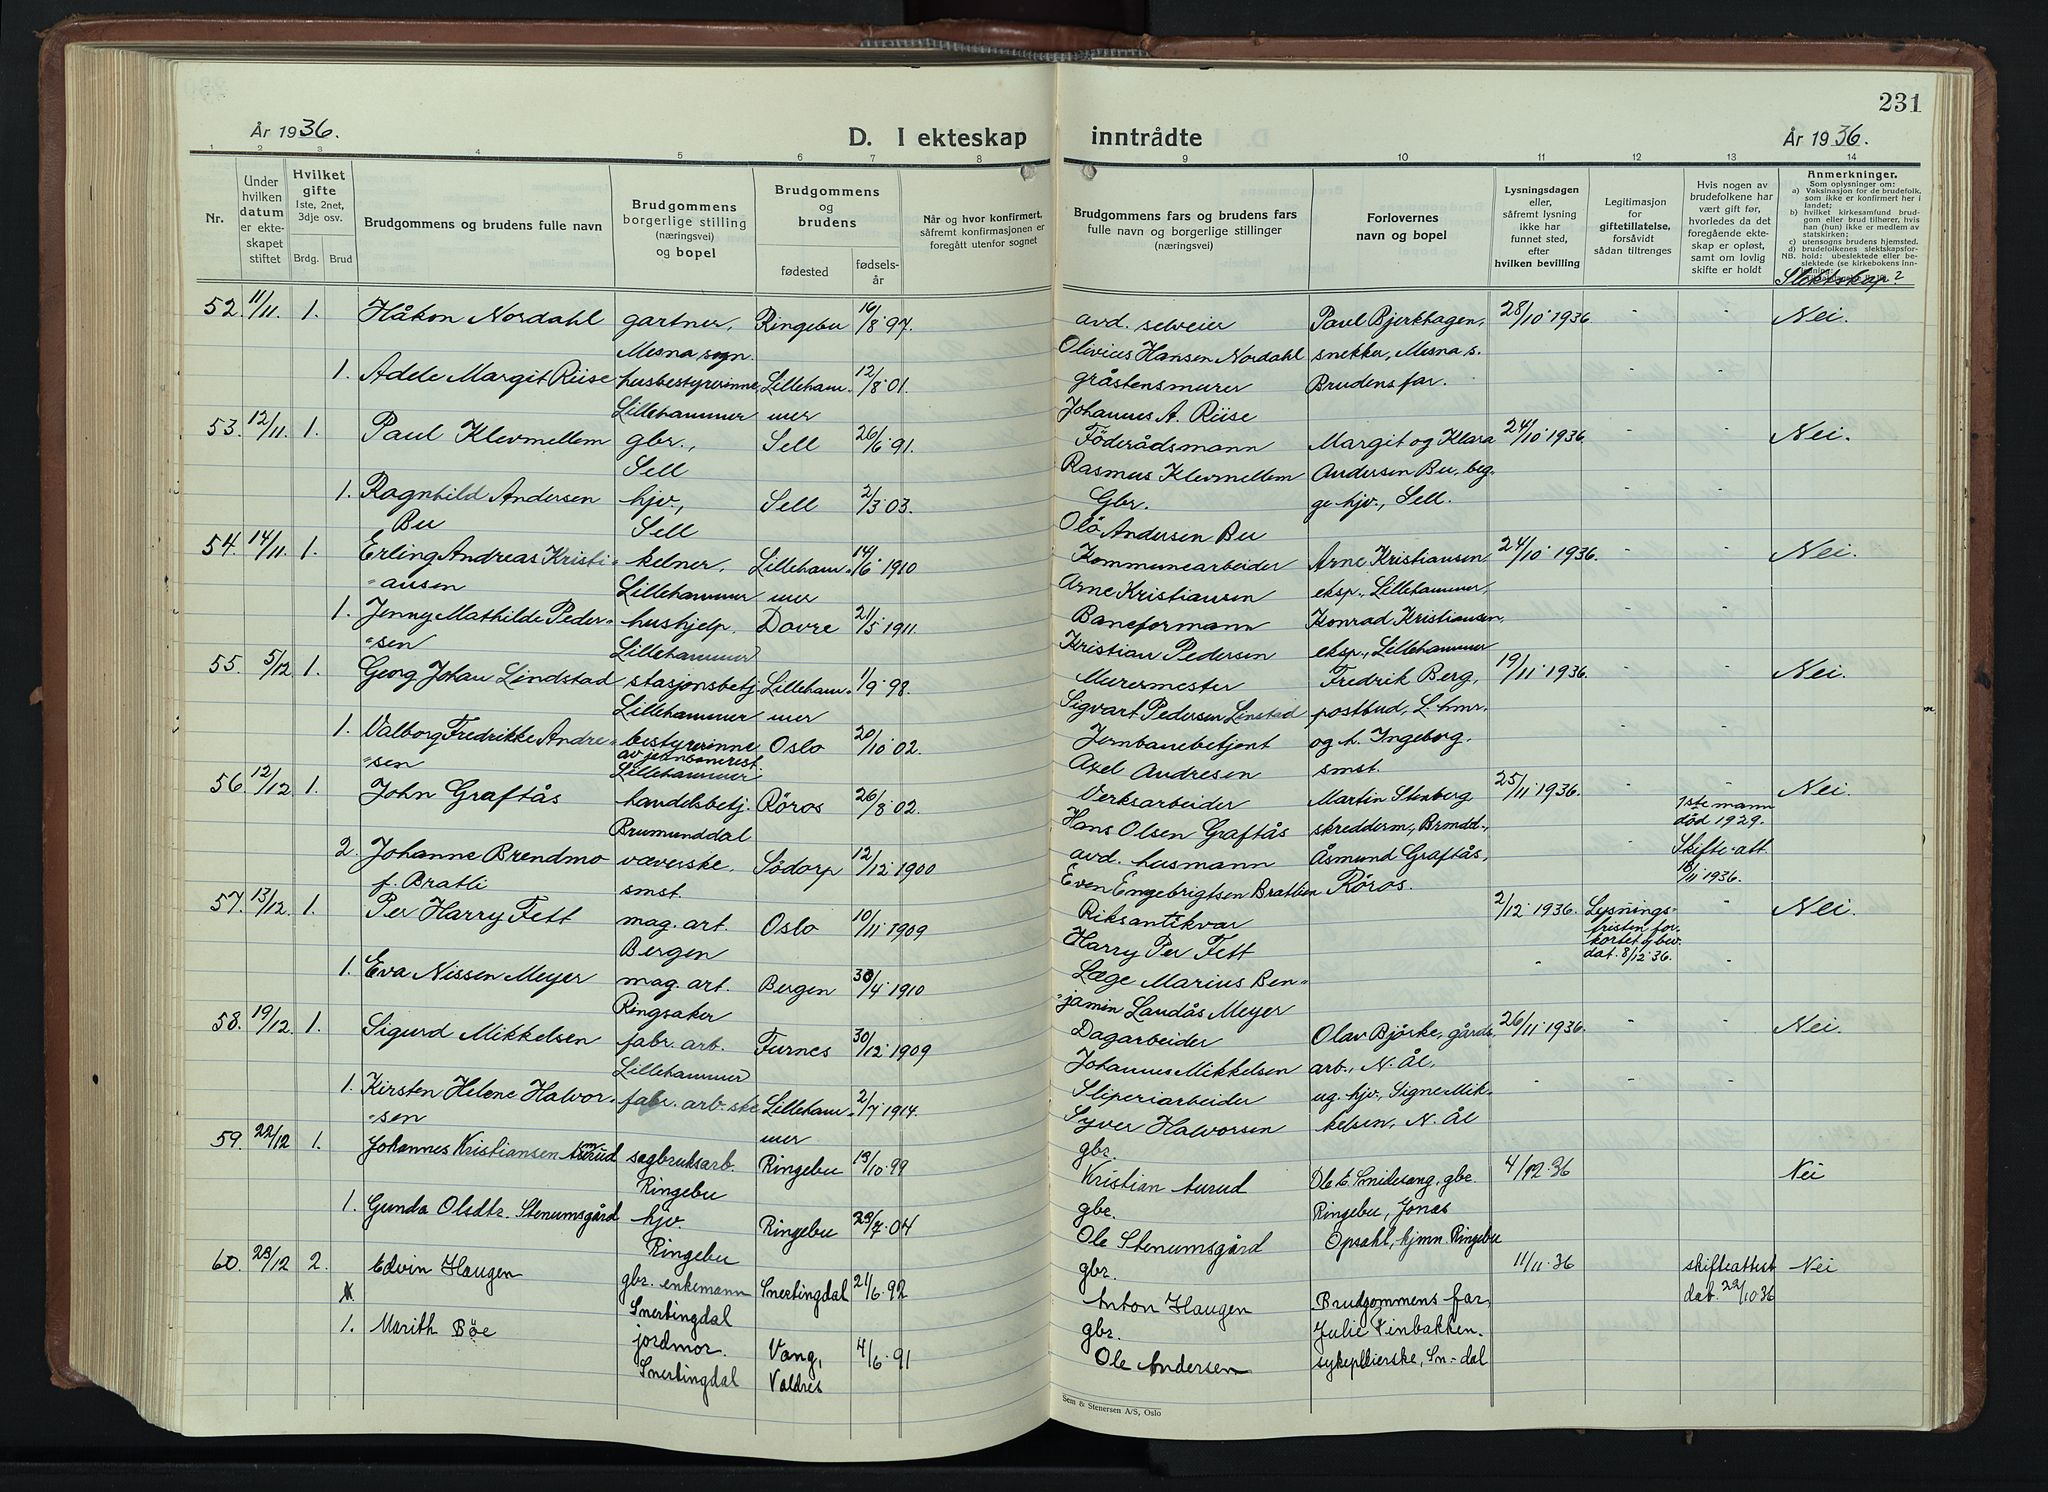 231
År 1936.
D. I ekteskap inntrådte
År 1936.
1 2 3 4 5 6 7 8 9 10 11 12 13 14
Nr.
Under hvilken datum er ekteskapet stiftet
Hvilket gifte
1ste, 2net, 3dje osv.
Brdg. Brud
Brudgommens og brudens fulle navn
Brudgommens borgerlige stilling (næringsvei) og bopel
Brudgommens og brudens
fødested
fødselsår
Når og hvor konfirmert, såfremt konfirmasjonen er foregått utenfor sognet
Brudgommens fars og brudens fars fulle navn og borgerlige stillinger (næringsvei)
Forlovernes navn og bopel
Lysningsdagen eller, såfremt lysning ikke har funnet sted, efter hvilken bevilling
Legitimasjon for giftetillatelse, forsåvidt sådan tiltrenges
Hvis nogen av brudefolkene har vært gift før, hvorledes da det foregående ekteskap er opløst, samt om lovlig skifte er holdt
Anmerkninger.
Som oplysninger om:
a) Vaksinasjon for de brudefolk, som ikke er konfirmert her i landet;
b) hvilket kirkesamfund brudgom eller brud tilhører, hvis han (hun) ikke er medlem av statskirken;
c) utensogns brudens hjemsted.
d) brudefolkenes slektskapsforhold: ubeslektede eller beslektede (se kirkebokens innledning:
NB.
Slektskap?
52. 11/11. 1. Håkon Nordahl gartner, Ringebu 16/8 97. avd. selveier Paul Bjerkhagen, 28/10 1936. Nei.
Mesna sogn. Olivius Hansen Nordahl snekker, Mesna s.
1. Adele Margit Riise husbestyrerinne, Lilleham- 12/8 01. gråstensmurer Brudens far.
Lillehammer mer Johannes A. Riise
53. 12/11. 1. Paul Klevmellem gbr., Sell 26/6 91. Föderådsmann Margit og Klara 24/10 1936. Nei.
Sell Rasmus Klevmellem Andersen Bu, beg-
1. Ragnhild Andersen hjv., Sell 2/3 03. Gbr. ge hjv., Sell.
Bu Sell Ola Andersen Bu
54. 14/11. 1. Erling Andreas Kristi- kelner, Lilleham- 14/6 1910 Kommunearbeider Arne Kristiansen, 24/10 1936. Nei.
ansen Lillehammer mer Arne Kristiansen eksp., Lillehammer,
1. Jenny Mathilde Peder- hushjelp, Dovre 21/5 1911. Baneformann Konrad Kristiansen,
sen Lillehammer Kristian Pedersen eksp., Lillehammer
55. 5/12 1. Georg Johan Lindstad stasjonsbetj. Lilleham- 1/9 98. Murermester Fredrik Berg, 19/11 1936. Nei.
Lillehammer mer Sigvart Pedersen Linstad postbud, L.hmr.
1. Valborg Fredrikke Andre- bestyrerinne Oslo 20/10 02. Jernbanebetjent og h. Ingeborg,
sen av jernbanerest. Lillehammer Axel Andresen smst.
56. 12/12 1. John Graftås handelsbetj. Röros 26/8 02. Verksarbeider Martin Stenberg 25/11 1936. 1ste mann Nei.
Brumunddal Hans Olsen Graftås skredderm., Brmdd., død 1929.
2. Johanne Brendmo væverske, Södorp 12/12 1900 avd. husmann Åsmund Graftås, Skifte-att.
f. Bratli smst. Even Engebrigtsen Bratlien Röros. 10/11 1936.
57. 13/12. 1. Per Harry Fett mag. art. Oslo 10/11 1909 Riksantikvar 2/12 1936. Lysnings- Nei.
Bergen Harry Per Fett fristen for-
kortet v. bev.
dat. 8/12 36.
1. Eva Nissen Meyer mag. art. Bergen 30/4 1910 Læge Marius Ben-
Ringsaker jamin Landås Meyer
58. 19/12. 1. Sigurd Mikkelsen fabr. arb. Furnes 30/12 1909 Dagarbeider Olav Björke, gårds- 26/11 1936. Nei.
Lillehammer Johannes Mikkelsen arb., N. Ål,
1. Kirsten Helene Halvor- fabr. arb.ske Lilleham- 2/7 1914. Sliperiarbeider ug. hjv., Signe Mik-
sen mer Syver Halvorsen kelsen, N. Ål
59. 22/12 1. Johannes Kristiansen Aurud sagbruksarb. Ringebu 13/10.99 gbr. 4/12.36 Nei
Ringebu Kristian Aurud gbr.
1. Gunda Olsdtr. Stenumsgård hjv. Ringebu 29/7.04 gbr. Ringebu, Jonas
Ringebu Ole Stenumsgård Opsahl, hjmn. Ringebu
60. 23/12 2. Edvin Haugen gbr. enkemann Snertingdal 21/6.92 gbr. 11/11.36 skifteattest Nei
Snertingdal Anton Haugen Brudgommens far, dat. 22/10.36
1. Marith Böe jordmor. Vang, 4/6.91 gbr. Julie Vinbakken.
Snertingdal Valdres Ole Andersen sykepleierske, Sn-dal
Sem & Stenersen A/S, Oslo